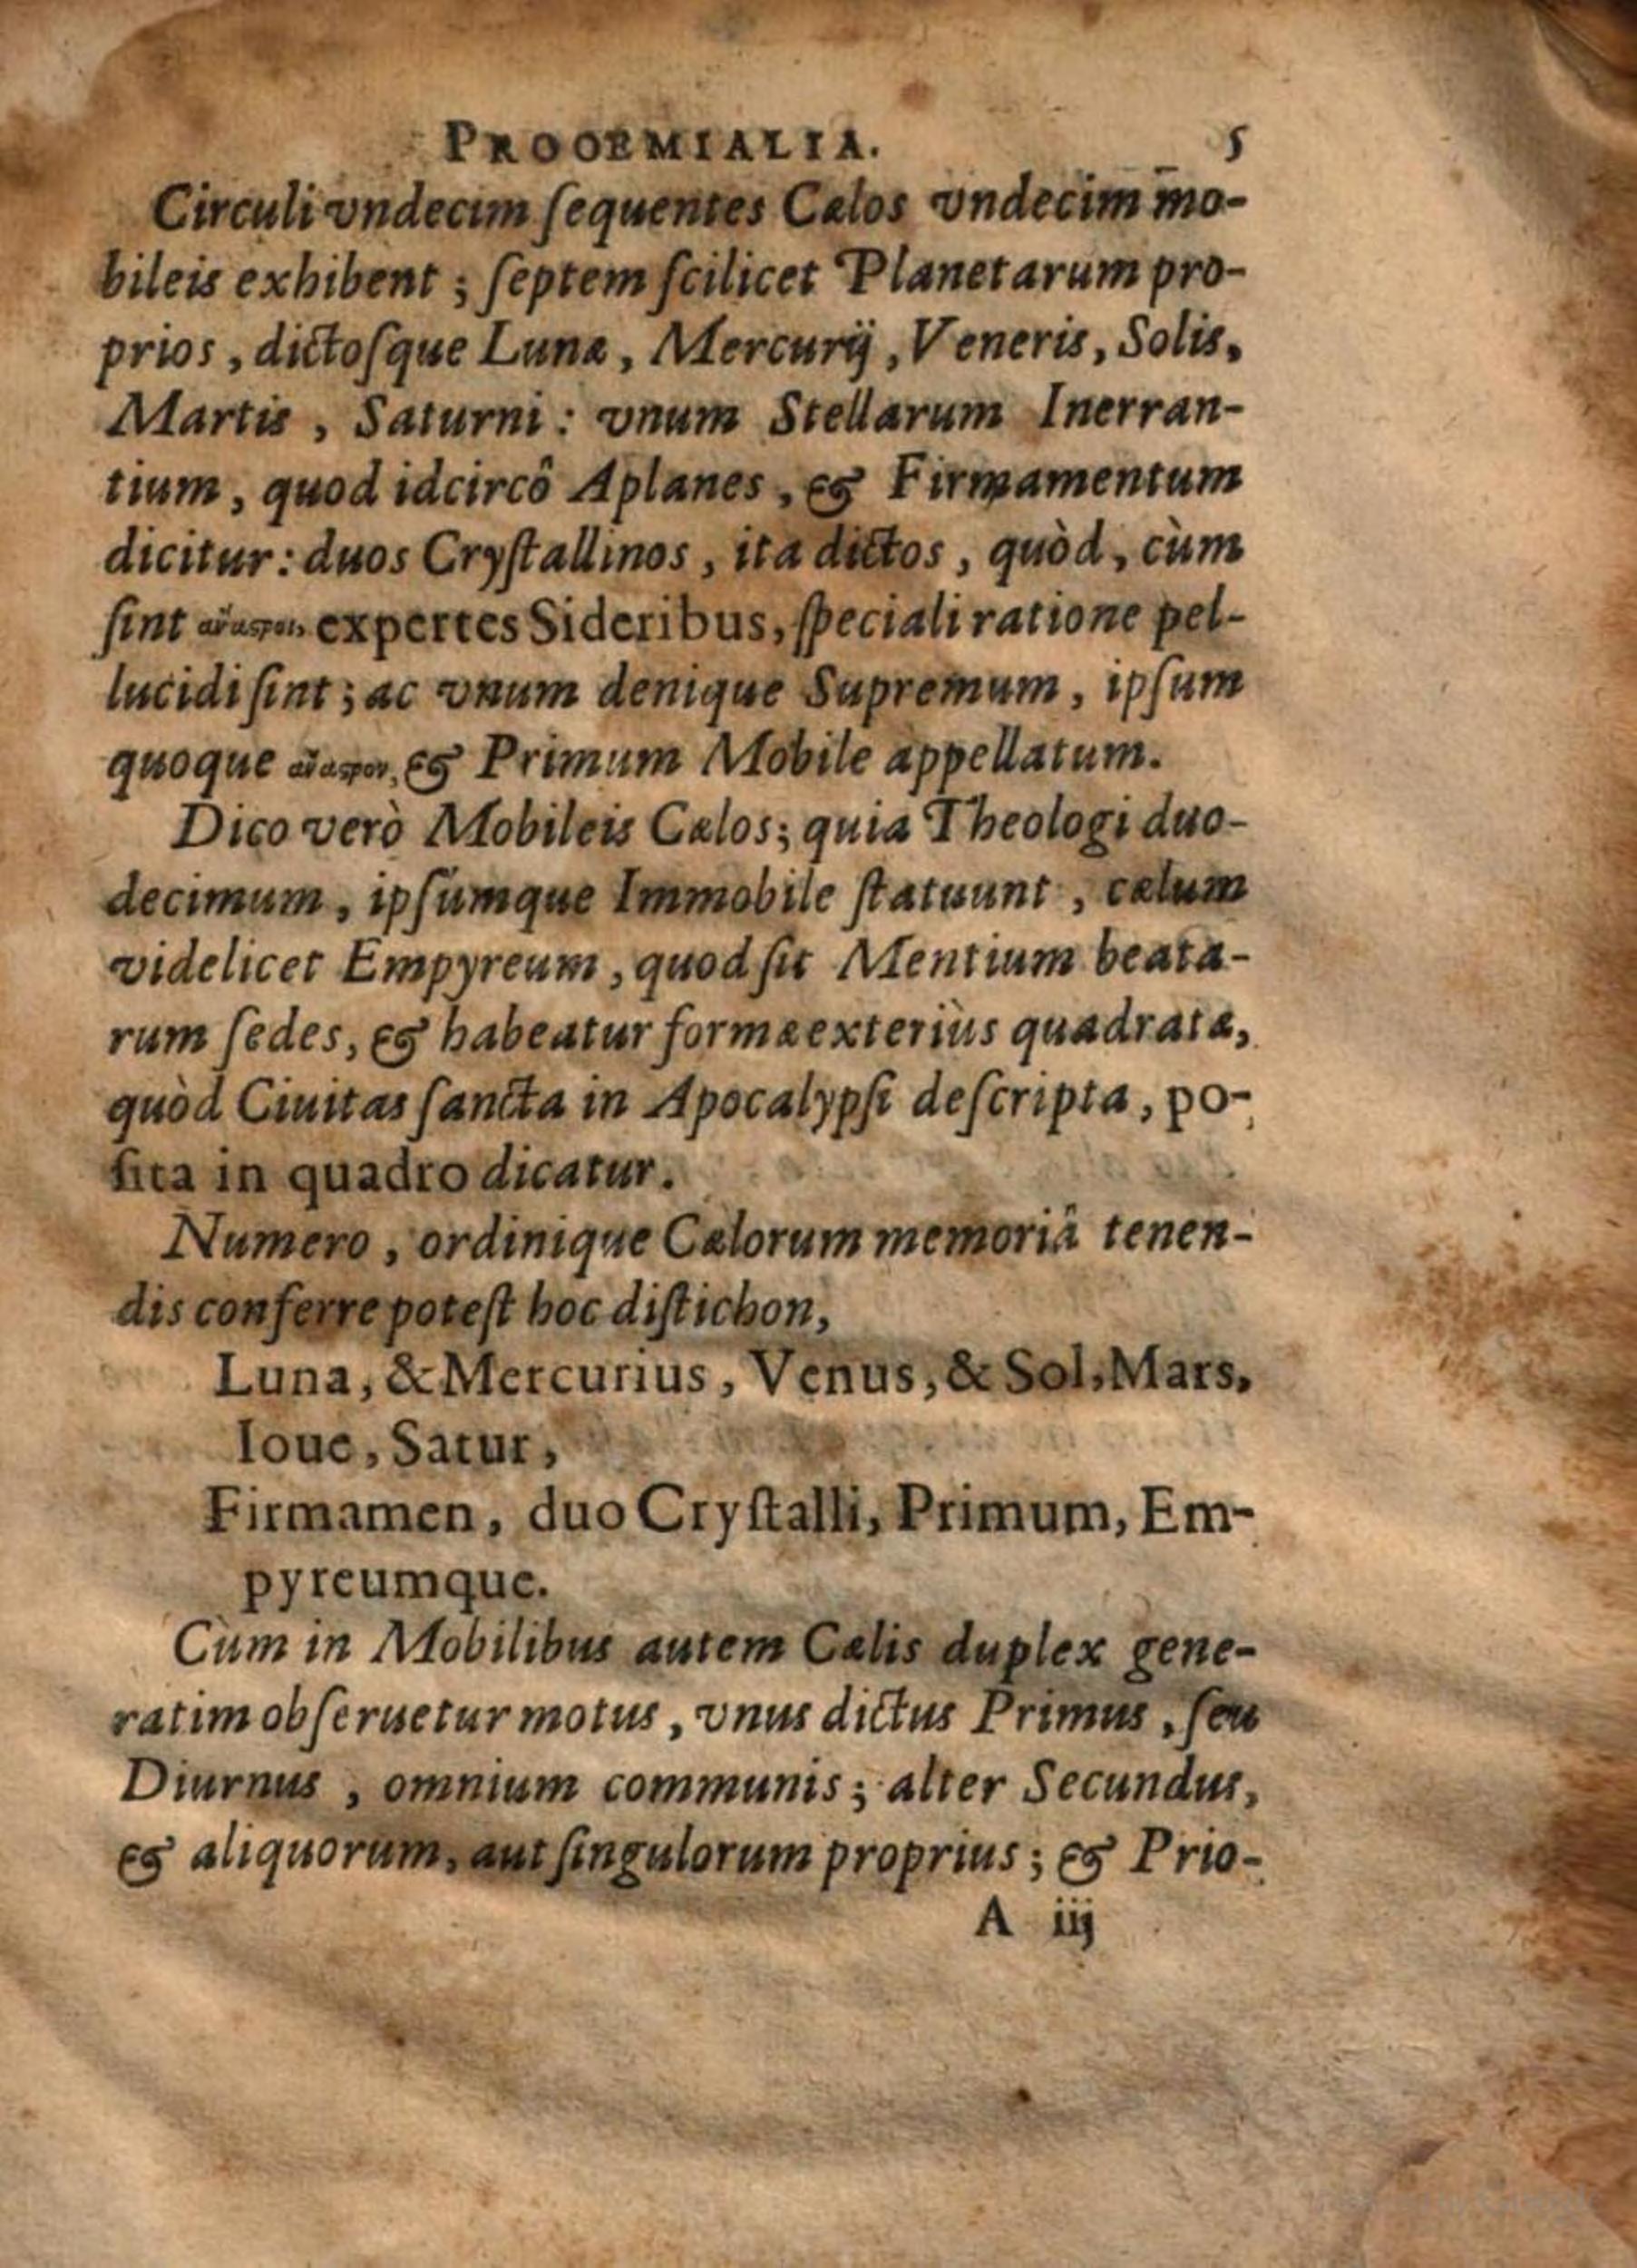 PROOEMIALIA. 5
Circuli vndecim ſequentes Cælos vndecim mo-
bileis exhibent ; ſeptem ſcilicet Planetarum pro-
prios , dictoſque Lunæ , Mercurij , Veneris , Solis,
Martis , Saturni : vnum Stellarum Inerran-
tium , quod idcircô Aplanes , & Firmamentum
dicitur : duos Cryſtallinos , ita dictos , quòd , cùm
ſint expertes Sideribus, ſpeciali ratione pel-
lucidi ſint ; ac vnum denique Supremum , ipſum
quoque & Primum Mobile appellatum.
Dico verò Mobileis Cælos; quia Theologi duo-
decimum , ipſúmque Immobile ſtatuunt , cælum
videlicet Empyreum , quod ſit Mentium beata-
rum ſedes, & habeatur formæ exteriùs quadratæ,
quòd Ciuitas ſancta in Apocalypſi deſcripta , po-
ſita in quadro dicatur.
Numero , ordinique Cælorum memoriâ tenen-
dis conferre poteſt hoc diſtichon,
Luna, & Mercurius , Venus, & Sol, Mars,
Ioue , Satur ,
Firmamen , duo Cryſtalli, Primum, Em-
pyreumque.
Cùm in Mobilibus autem Cælis duplex gene-
ratim obſeruetur motus , vnus dictus Primus , ſeu
Diurnus , omnium communis ; alter Secundus,
& aliquorum, aut ſingulorum proprius ; & Prio-
A iij